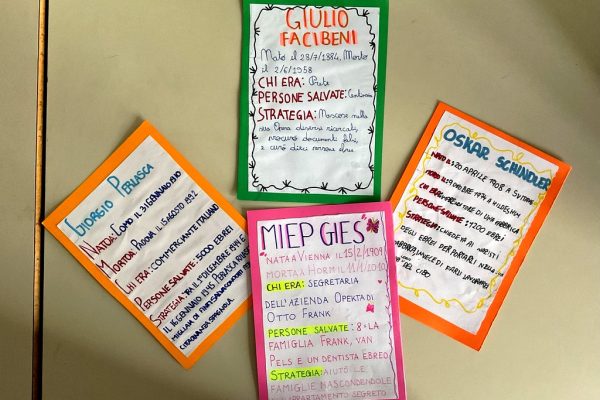 GIULIO
FACIBENI
Nato il 28/7/1884, Morto
il 2/6/1958
CHI ERA: Prete
PERSONE SALVATE: Centinaia
STRATEGIA: Nascose nella
sua Opera diversi ricercati,
procurò documenti falsi,
e curò dieci persone ebree
GIORGIO PERLASCA
NATO A: COMO IL 31 GENNAIO 1910
MORTO A: PADOVA IL 15 AGOSTO 1992
CHI ERA: COMMERCIANTE ITALIANO
PERSONE SALVATE: 5000 EBREI
STRATEGIA: TRA IL 1° DICEMBRE 1944 E
IL 16 GENNAIO 1945 PERLASCA
MIGLIAIA DI
CITTADINANZA SPAGNOLA
MIEP GIES
NATA A VIENNA IL 15/2/1909
MORTA A HORM IL 11/1/2010
CHI ERA: SEGRETARIA
DELL'AZIENDA OPEKTA DI
OTTO FRANK
PERSONE SALVATE: 8: LA
FAMIGLIA FRANK, VAN
PELS E UN DENTISTA EBREO
STRATEGIA: AIUTÒ LE
FAMIGLIE NASCONDENDOLE
APPARTAMENTO SEGRETO
OSKAR SCHINDLER
NATO A: 20 APRILE 1908 A SVITAVY
MORTO IL 9 OTTOBRE 1974 A HILDESHEIM
CHI ERA: DI UNA FABBRICA
PERSONE SALVATE: 1200 EBREI
STRATEGIA: CHIEDEVA AI NAZISTI
DEGLI EBREI PER PORTARLI NELLA
INVECE DI DARLI LAVORO
DEL CIBO